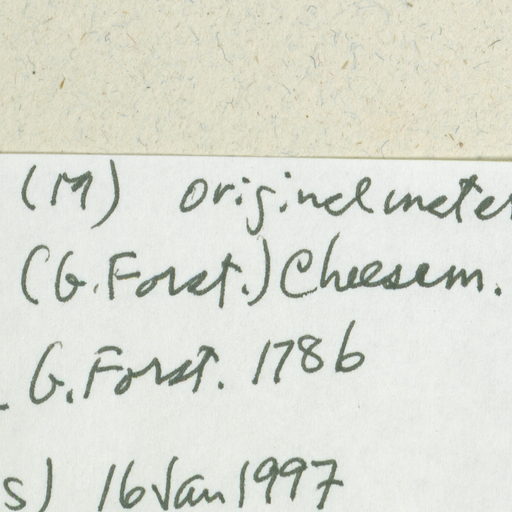 (M) original mater
(G. Forst.) Cheesem.
G. Forst. 1786
s) 16 Jan 1997